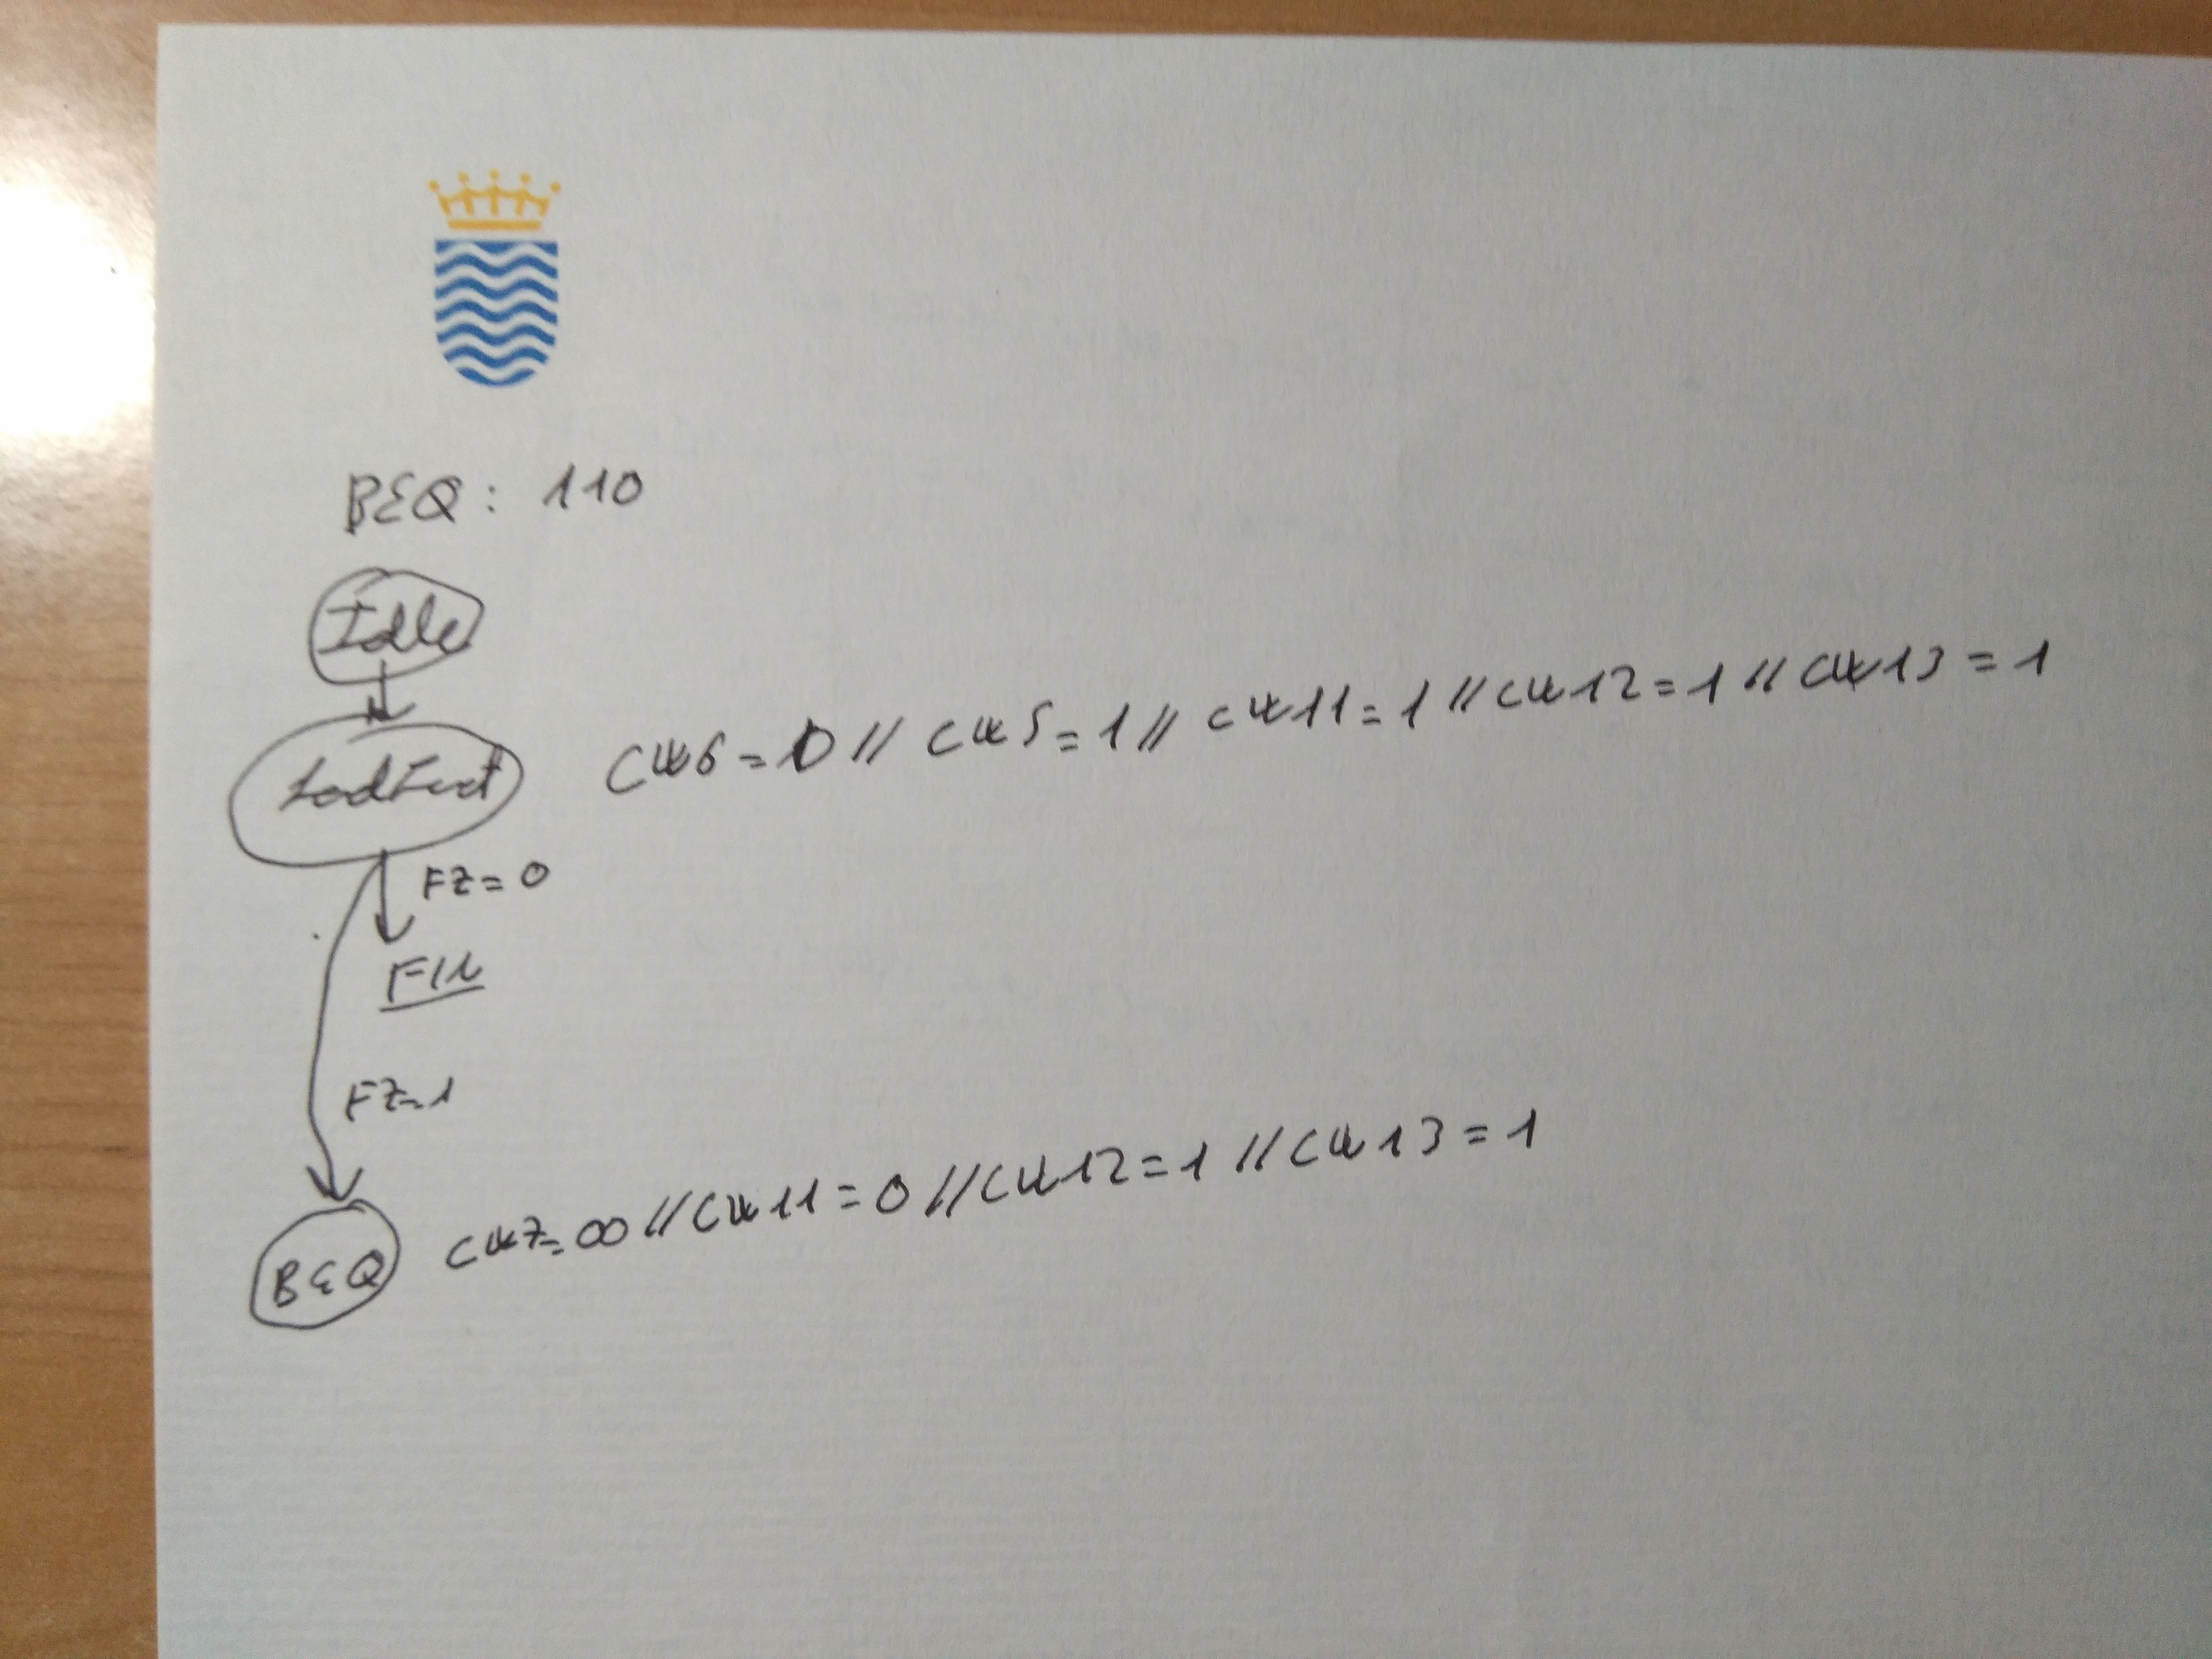 BEQ: 110
Idle
LoadInst CW6=0 // CW5=1 // CW11=1 // CW12=1 // CW13=1
FZ=0
FIN
FZ=1
BEQ CW7=00 // CW11=0 // CW12=1 // CW13=1